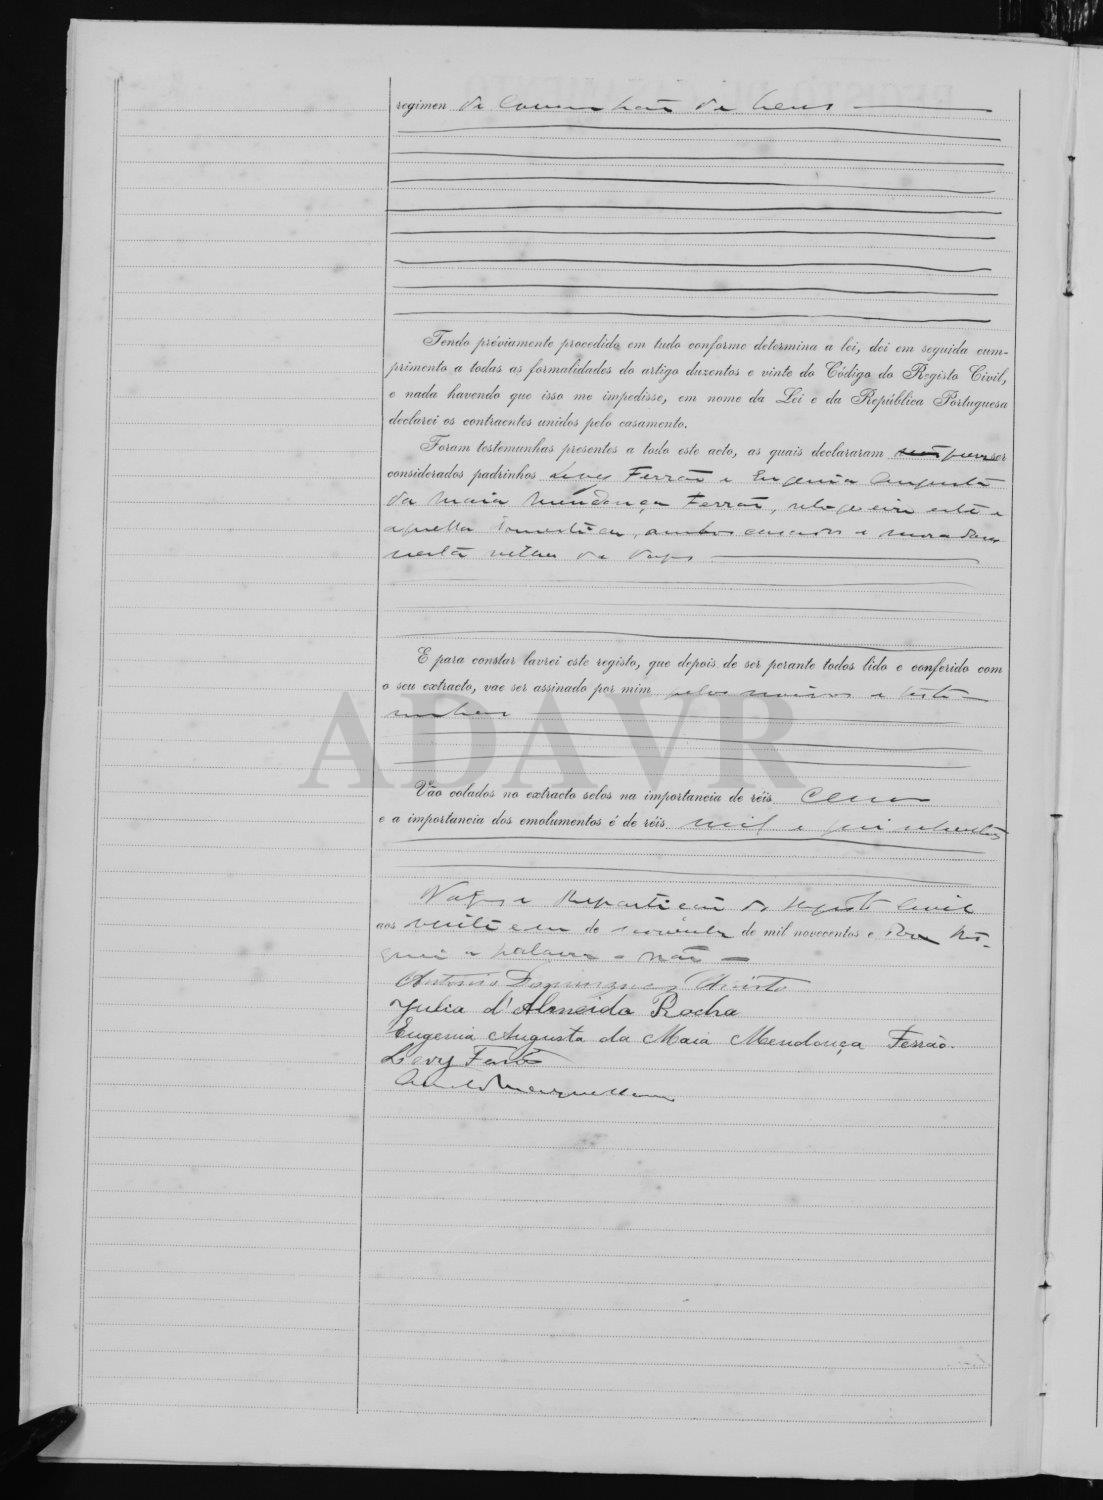 regimen de comunhão de bens
Tendo préviamente procedido em tudo conforme determina a lei, dei em seguida cum-
primento a todas as formalidades do artigo duzentos e vinte do Código do Registo Civil,
e nada havendo que isso me impedisse, em nome da Lei e da República Portuguesa
declarei os contraentes unidos pelo casamento.
Foram testemunhas presentes a todo este acto, as quais declararam não querer ser
considerados padrinhos Levy Ferrão e Eugenia Augusta
da Maia Mendonça Ferrão, este e
aquella domestica, ambos casados e moradores
nesta de Vagos
E para constar lavrei este registo, que depois de ser perante todos lido e conferido com
o seu extracto, vae ser assinado por mim pelos noivos e teste-
munhas
ADAVR
Vão colados no extracto selos na importancia de réis
e a importancia dos emolumentos é de réis mil e quinhentos
Vagos e Repartição do Registo Civil
aos vinte e um de de mil novecentos e
a palavra = não =
Antonio Domingues Christo
Julia d'Almeida Rocha
Eugenia Augusta da Maia Mendonça Ferrão.
Levy Ferrão